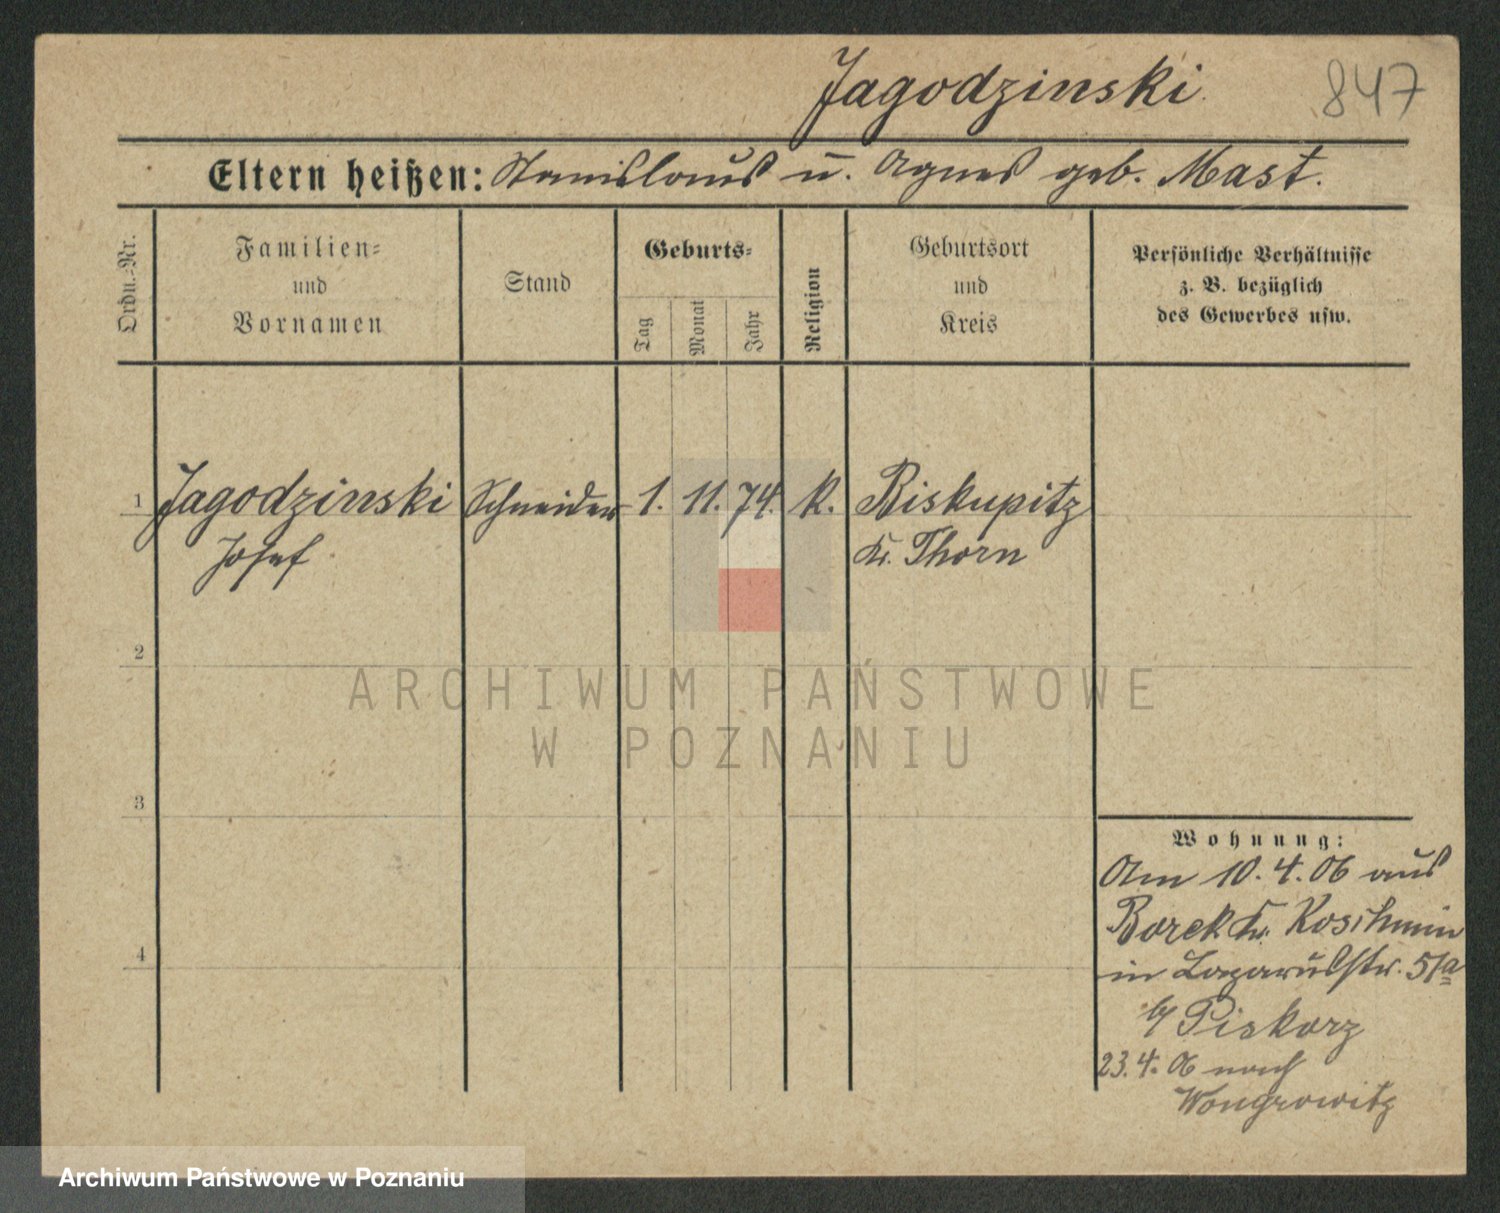 Jagodzinski
847
Eltern heißen: Stanislaus u. Agnes geb. Mast.
Ordn.-Nr.
Familien-
und
Vornamen
Stand
Geburts-
Tag
Monat
Jahr
Religion
Geburtsort
und
Kreis
Persönliche Verhältnisse
z. B. bezüglich
des Gewerbes usw.
1 Jagodzinski Schneider 1. 11. 74. k. Biskupitz
Josef Kr. Thorn
2
3
4
Wohnung:
Am 10. 4. 06 aus
Borek Kr. Koschmin
in Lazarusstr. 51a
b/ Piskorz
23. 4. 06 nach
Wongrowitz
ARCHIWUM PAŃSTWOWE
W POZNANIU
Archiwum Państwowe w Poznaniu